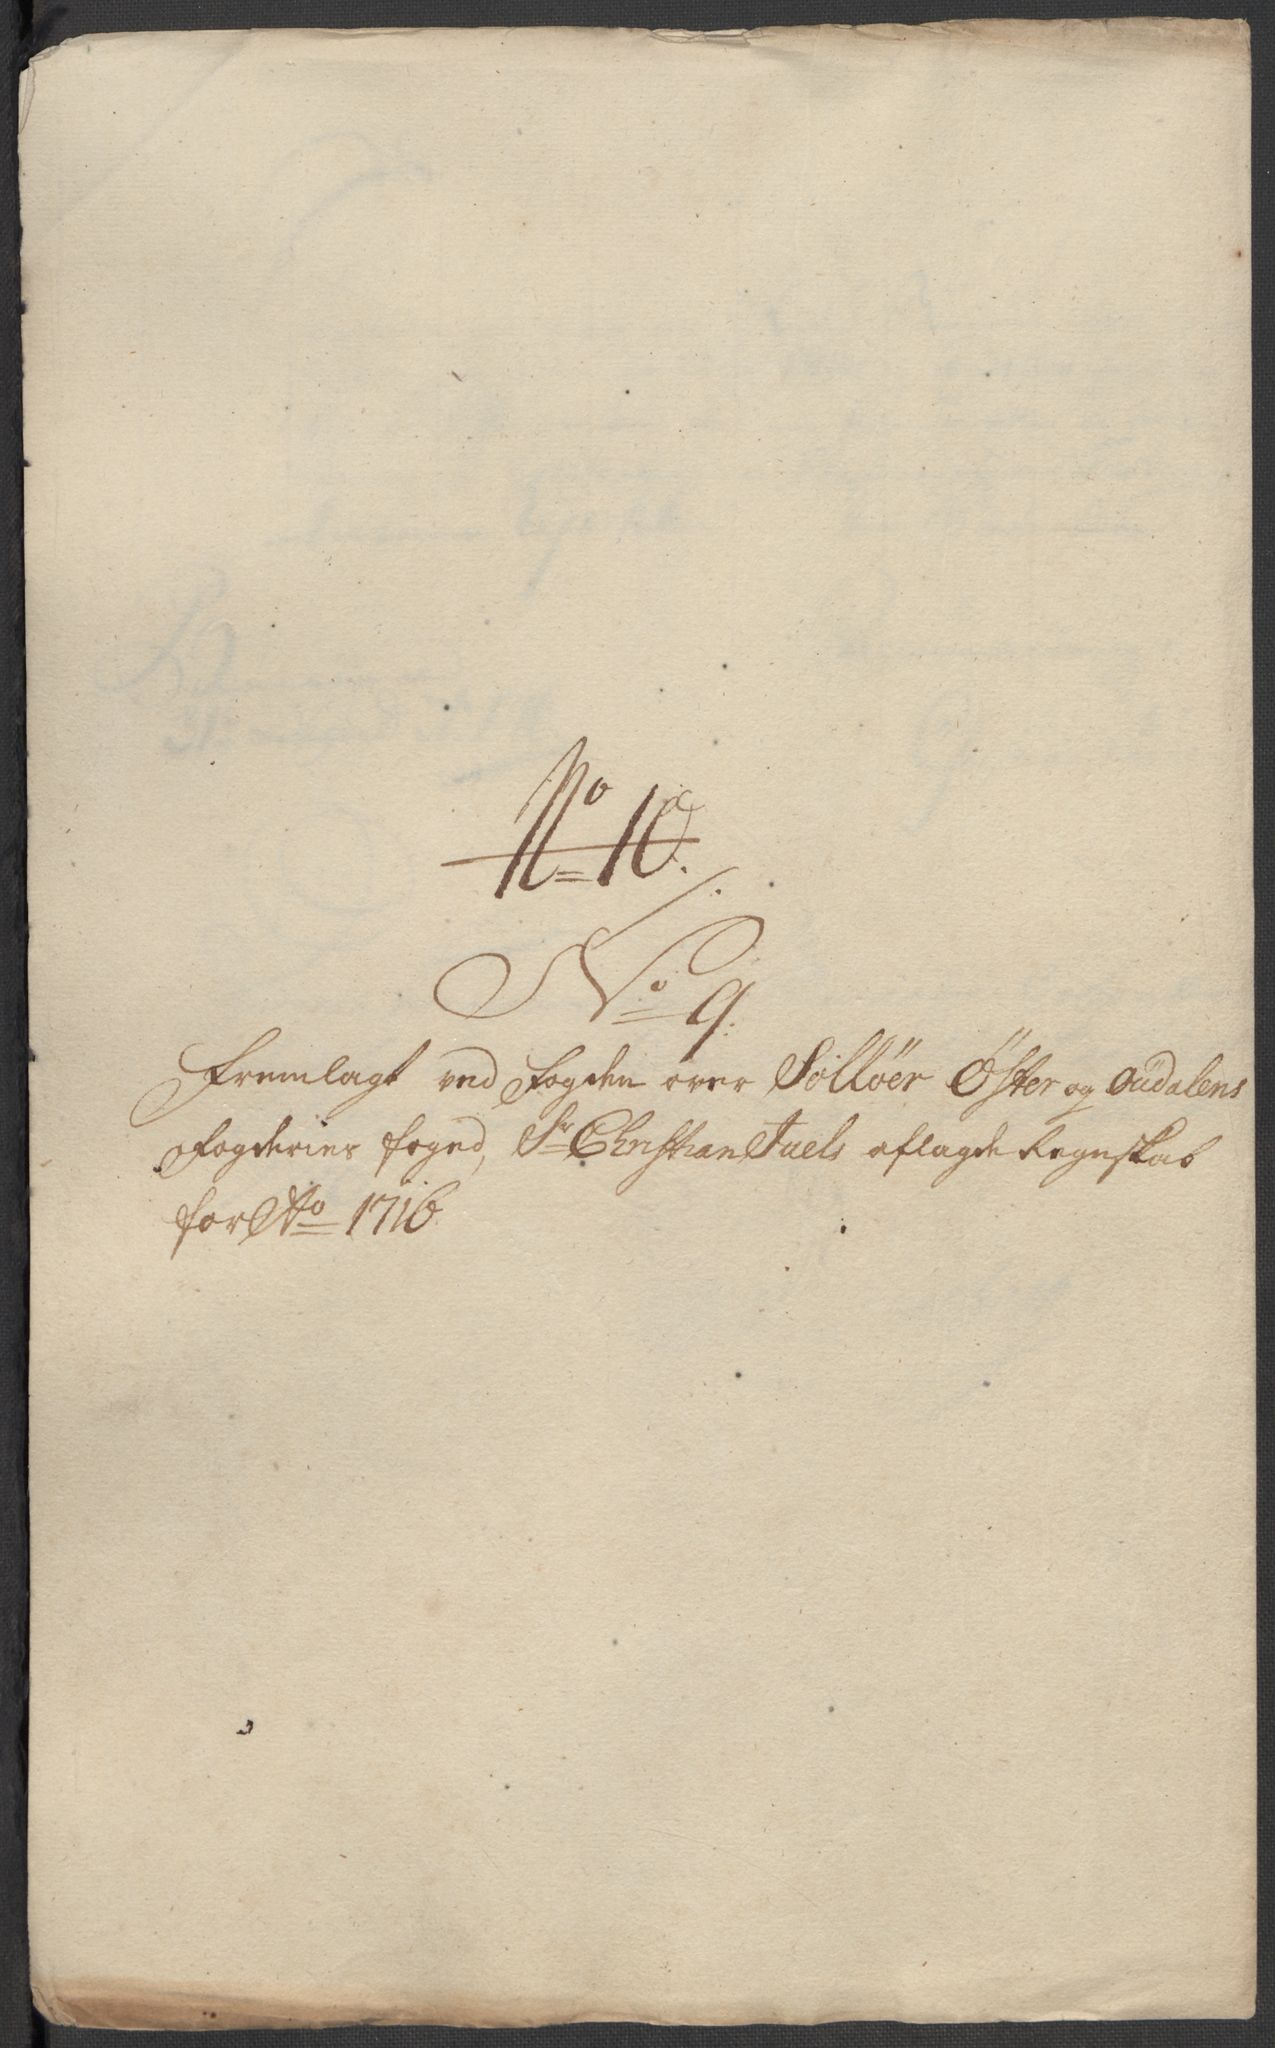 No 10.
No 9.
Fremlagt ved Fogden over Solløer Öster og Oudalens
Fogderier foged, Sr Christian Juels aflagde Regnskab
for Ao 1716